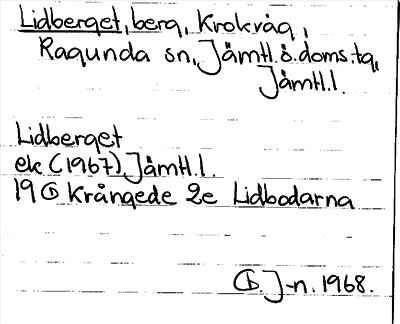 Lidberget, berg, Krokvåg,
Ragunda sn, Jämtl. ö. doms. tg,
Jämtl. l.
Lidberget
ek (1967), Jämtl. l.
19 G Krångede 2e Lidbodarna
B. J-n. 1968.